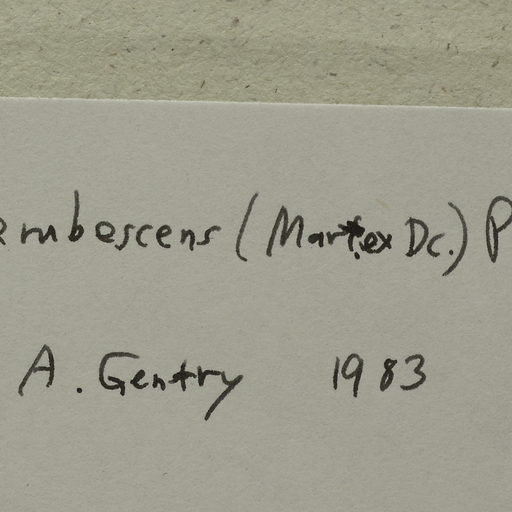 erubescens (Mart. ex DC.) P
A. Gentry 1983